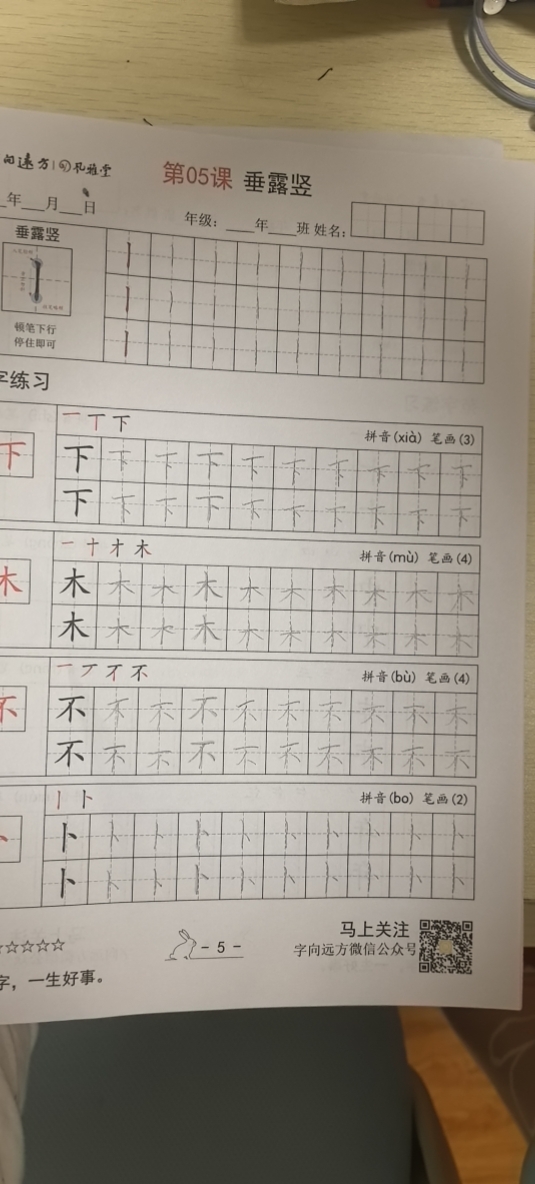 向远方 孔雅堂
第05课 垂露竖
年 月 日
年级: 年 班 姓名:
垂露竖
顿笔下行
停住即可
字练习
一 丅 下
拼音(xià) 笔画(3)
下 下 下 下 下 下 下 下 下 下 下
下 下 下 下 下 下 下 下 下 下
一 十 才 木
拼音(mù) 笔画(4)
木 木 木 木 木 木 木 木 木 木 木
木 木 木 木 木 木 木 木 木 木
一 丆 不 不
拼音(bù) 笔画(4)
不 不 不 不 不 不 不 不 不 不 不
不 不 不 不 不 不 不 不 不 不
丨 卜
拼音(bo) 笔画(2)
卜 卜 卜 卜 卜 卜 卜 卜 卜 卜
卜 卜 卜 卜 卜 卜 卜 卜 卜 卜
☆☆☆☆☆
- 5 -
马上关注
字向远方微信公众号
字,一生好事。